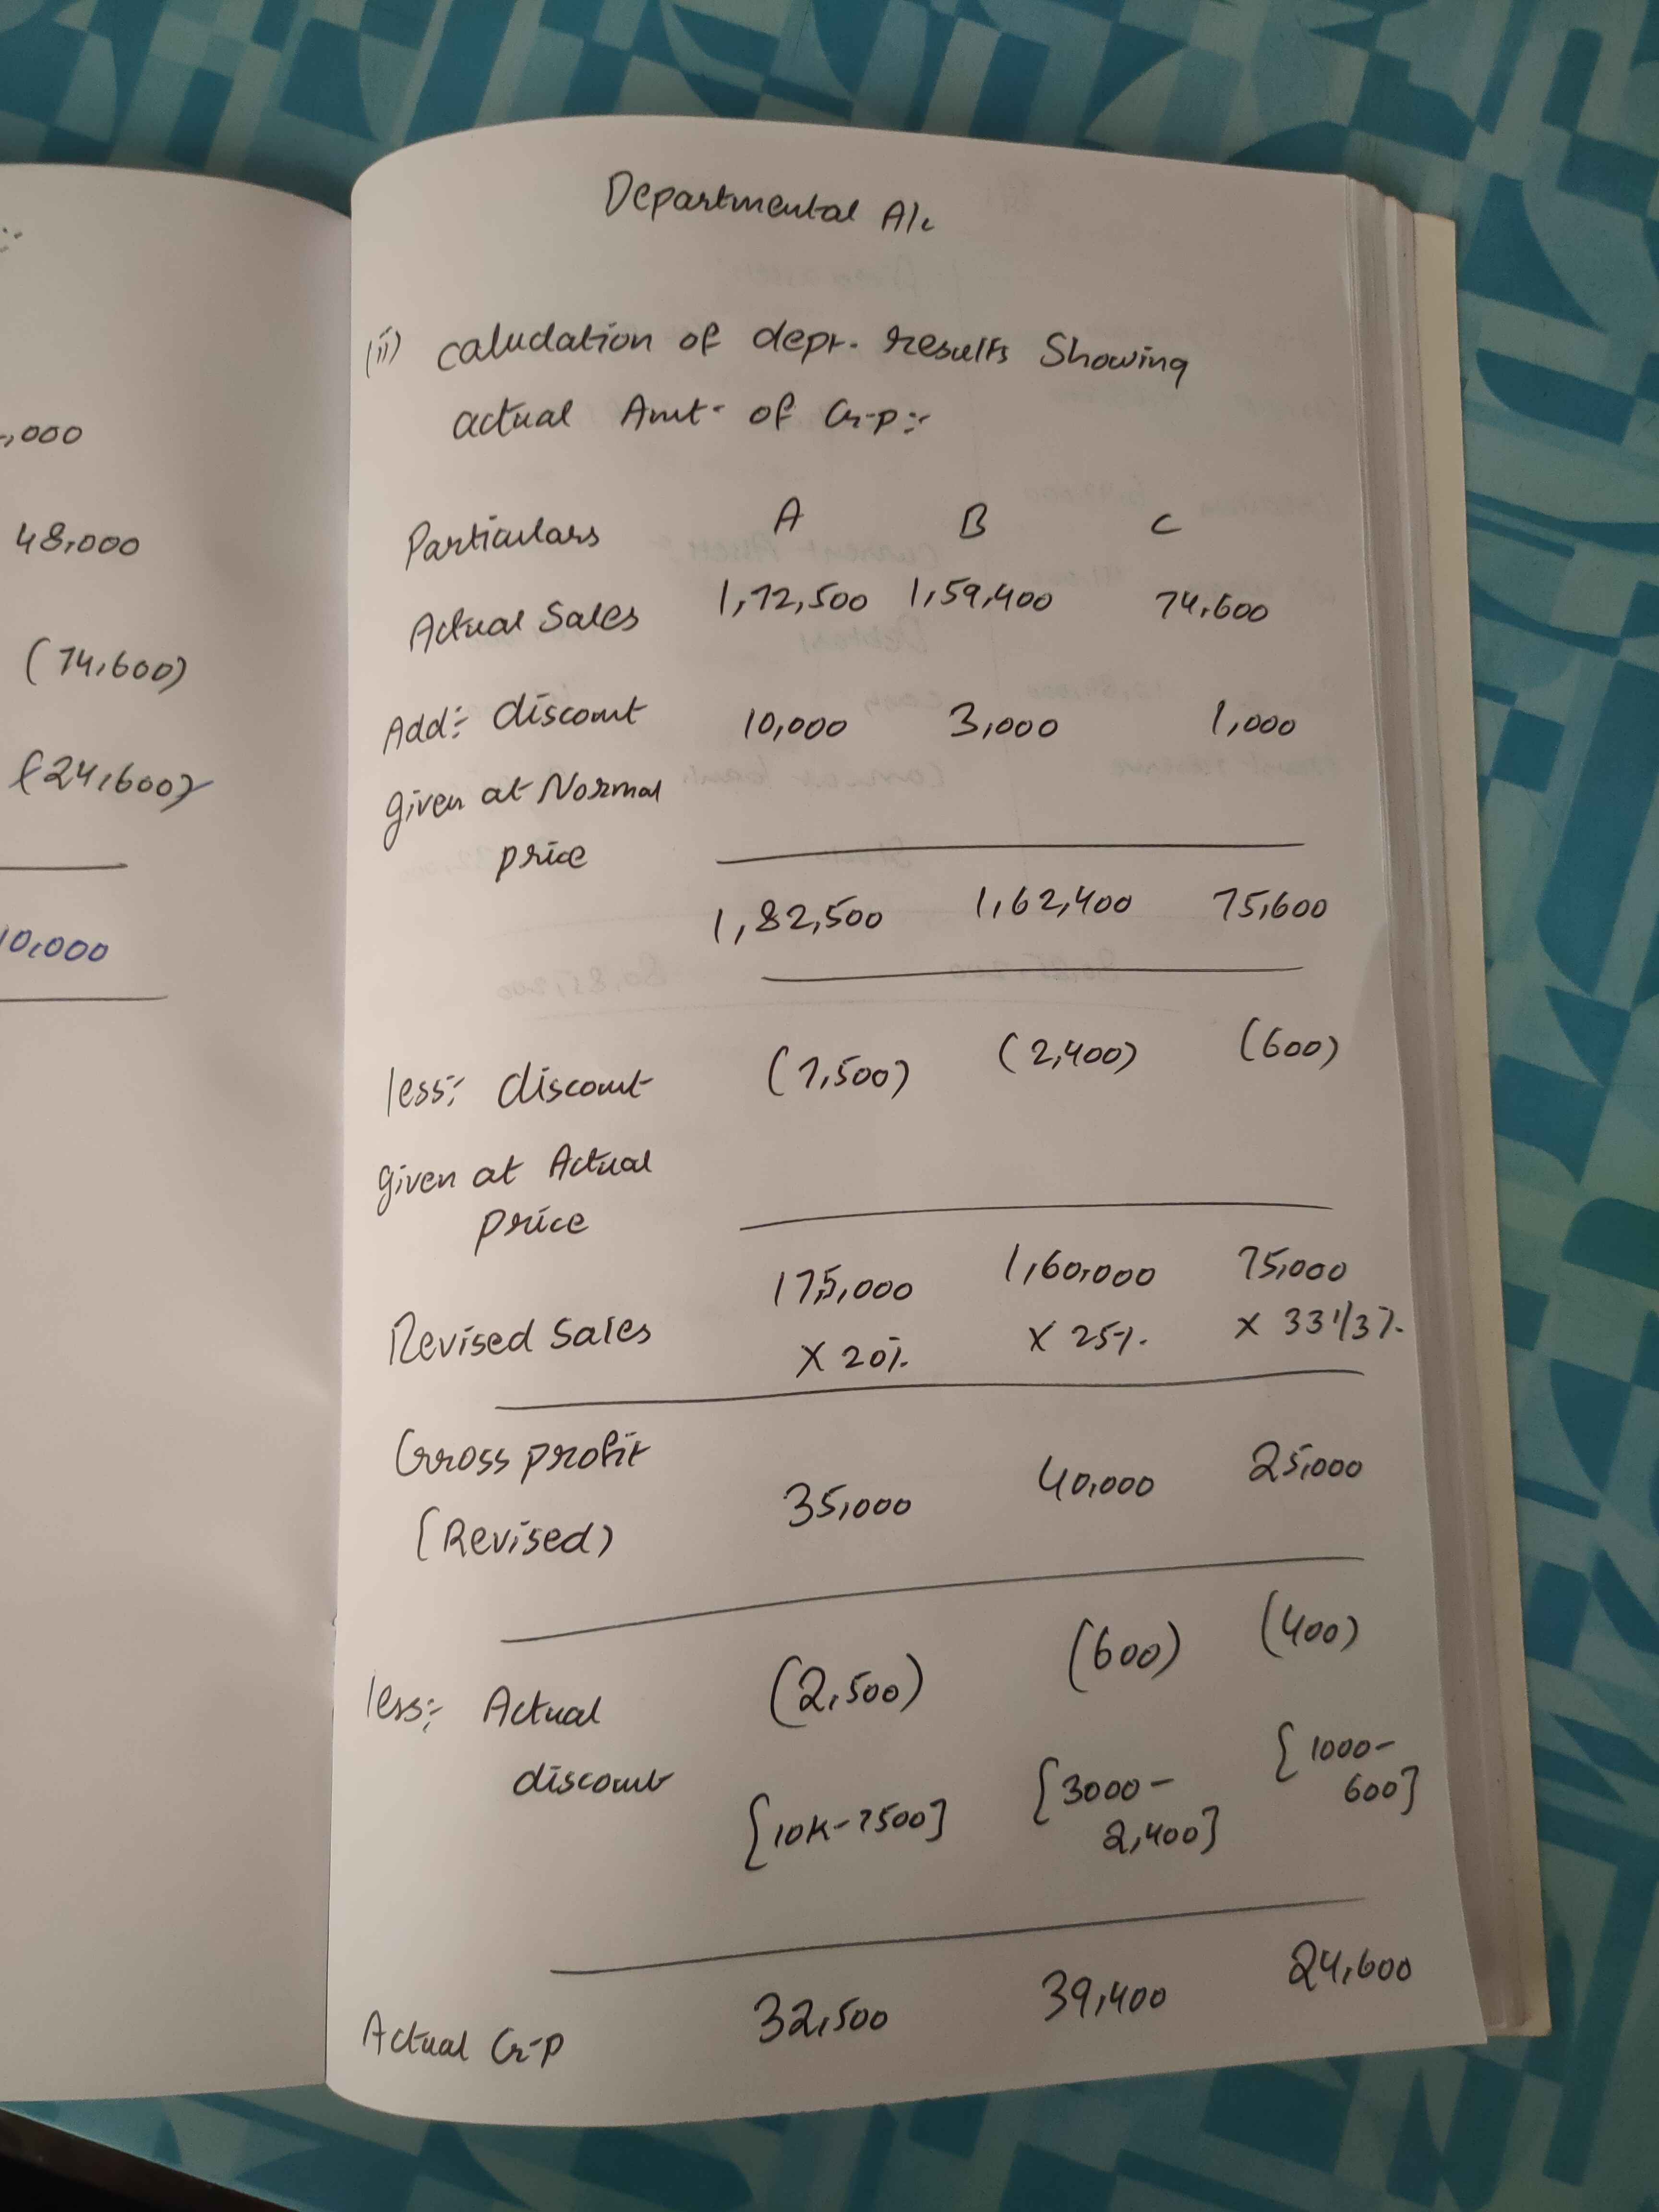 -,000
48,000
(74,600)
(24,600)
10,000
Departmental A/c
(ii) caludation of depr. results Showing
actual Amt. of G.P:-
Particulars A B C
Actual Sales 1,72,500 1,59,400 74,600
Add:- discount 10,000 3,000 1,000
given at Normal
price
1,82,500 1,62,400 75,600
less:- discount (7,500) (2,400) (600)
given at Actual
price
175,000 1,60,000 75,000
Revised Sales X 20% X 25% X 33 1/3%
Gross profit
35,000 40,000 25,000
(Revised)
less:- Actual (2,500) (600) (400)
discount [10K-7500] [3000- [1000-
2,400] 600]
Actual G.P 32,500 39,400 24,600